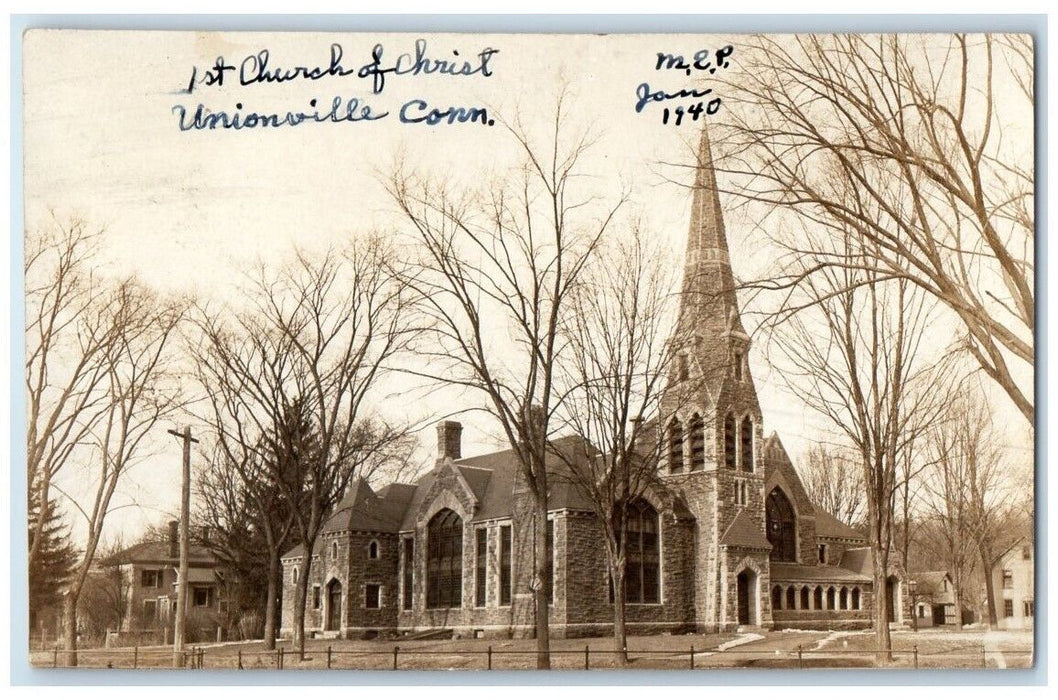 1st Church of Christ
Unionville Conn.
M.E.P.
Jan
1940